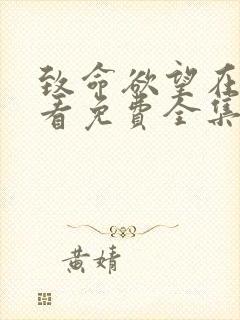 致命欲望在
看免费全集
黄婧